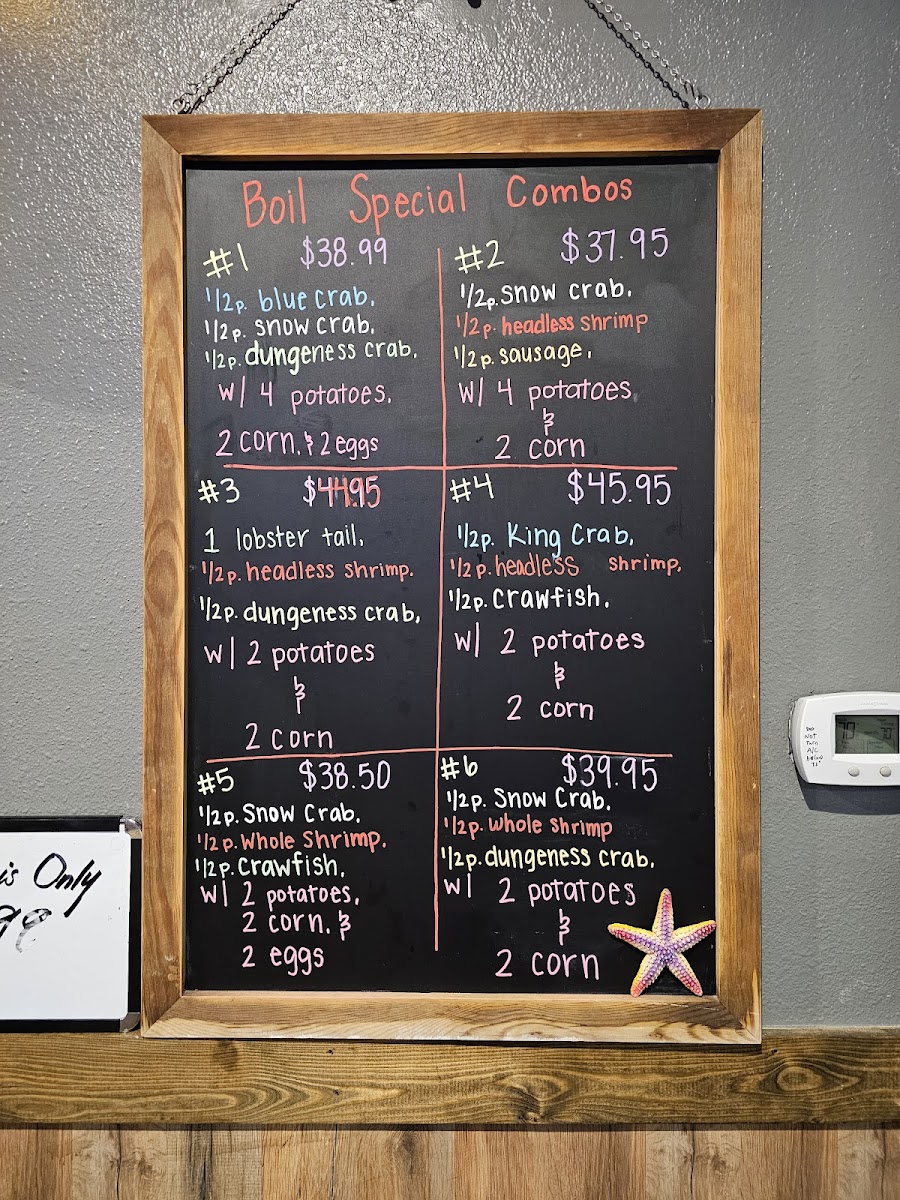 Boil Special Combos
#1 $38.99
1/2p. blue crab,
1/2p. snow crab,
1/2p. dungeness crab,
w/ 4 potatoes,
2 corn, & 2 eggs
#2 $37.95
1/2p. snow crab,
1/2p. headless shrimp
1/2p. sausage,
w/ 4 potatoes,
&
2 corn
#3 $44.95
1 lobster tail,
1/2p. headless shrimp.
1/2p. dungeness crab,
w/ 2 potatoes
&
2 corn
#4 $45.95
1/2p. King Crab,
1/2p. headless shrimp,
1/2p. Crawfish,
w/ 2 potatoes
&
2 corn
#5 $38.50
1/2p. Snow Crab,
1/2p. Whole Shrimp,
1/2p. Crawfish,
w/ 2 potatoes,
2 corn, &
2 eggs
#6 $39.95
1/2p. Snow Crab,
1/2p. whole shrimp
1/2p. dungeness crab,
w/ 2 potatoes
&
2 corn
is Only
DO
NOT
Turn
A/C
70
70